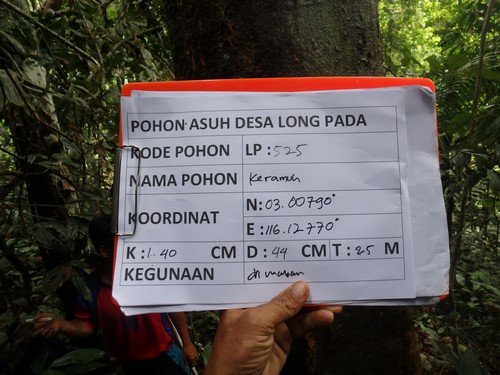 POHON ASUH DESA LONG PADA
KODE POHON LP : 525
NAMA POHON Keramuh
KOORDINAT N: 03.00790°
E: 116.12770°
K : 1.40 CM D : 44 CM T : 25 M
KEGUNAAN di makan